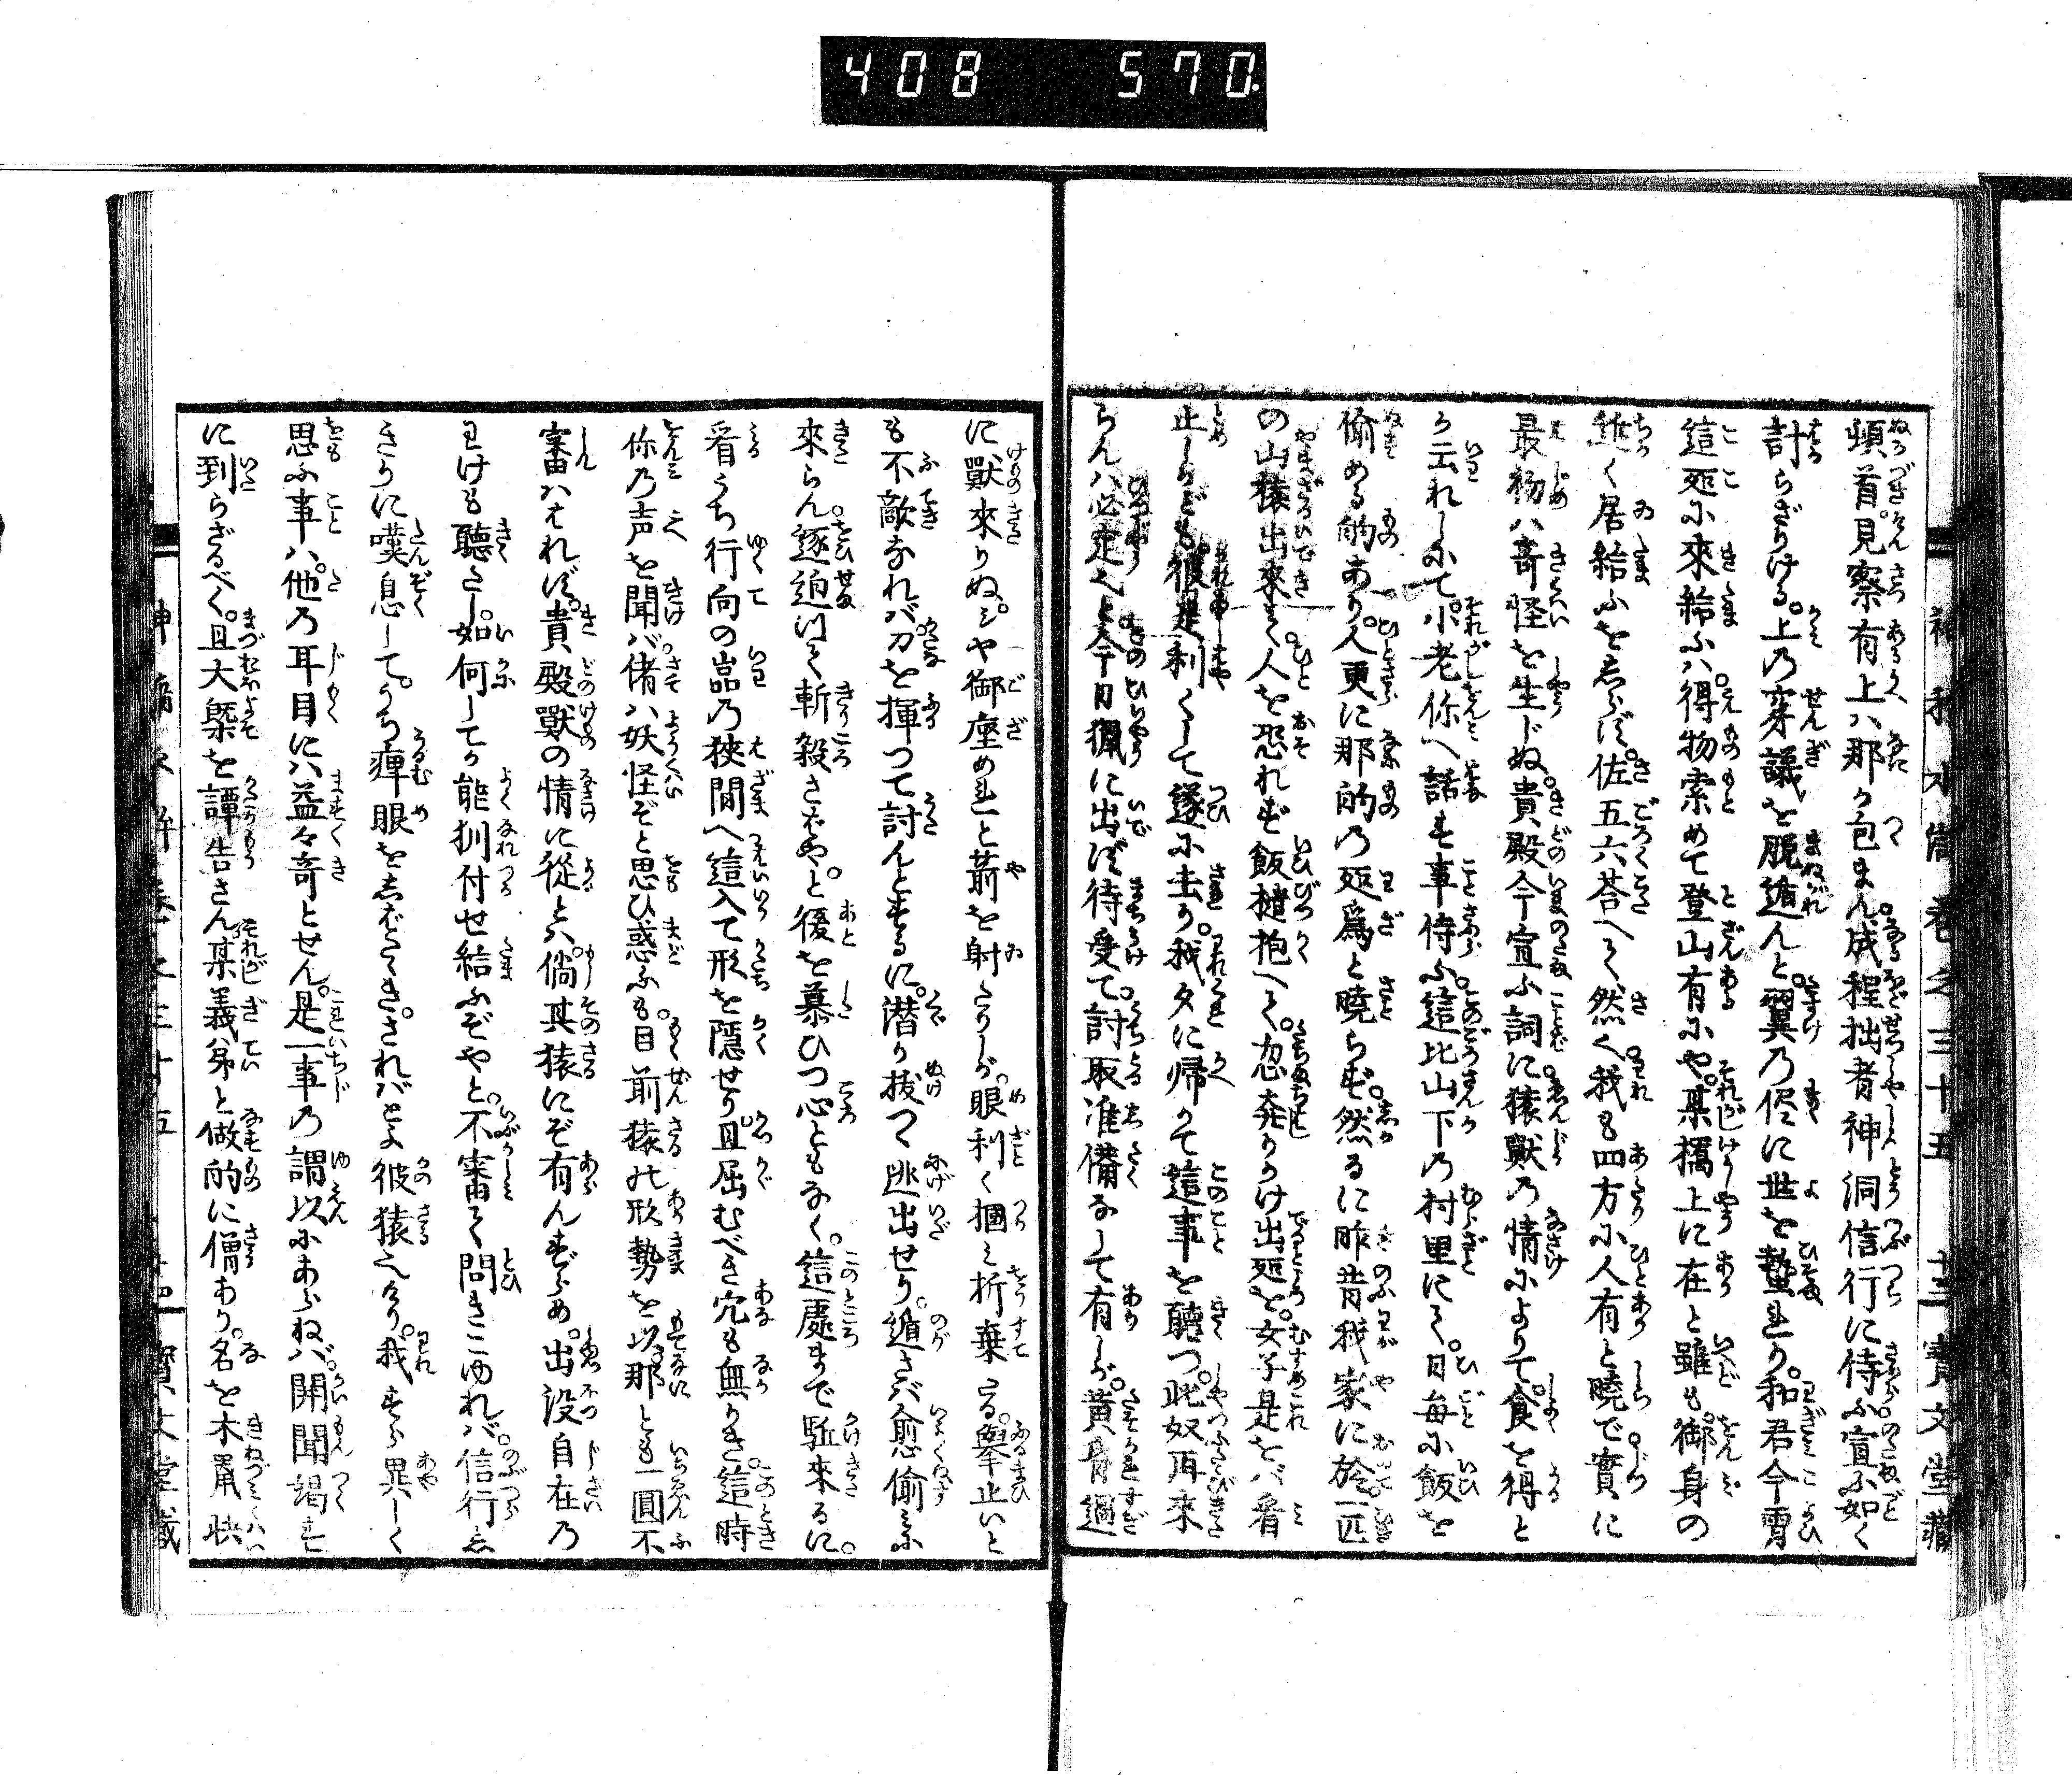 408 570
神稲水滸巻之三十五 十三 寳文堂藏
頓首見察有上ハ那ぞ包まん。成程拙者神洞信行に侍ふ宣ふ如く
計らざりける。上乃穿議を脱遁んと。翼乃侭に世を蟄せり。和君今宵
這処に來給ふハ。得物索めて登山有にや。某搆上に在と雖も。御身の
近く居給ふをしらず。佐五六荅へて然く我も四方に人有と曉で實に
最初ハ奇怪を生じぬ。貴殿今宣ふ詞に猿獸乃情によりて食を得と
か云れしにて。小老你へ話す事侍ふ。這比山下乃村里にて。日毎に飯を
偷める的あり。人更に那的乃処爲と曉らず。然るに昨昔我家に於一匹
の山猿出來て。人を恐れず飯櫃抱へて。忽奔りかけ出処を。女子是をバ看
止しかども。彼逃利くして遂に去り。我夕に帰りて這事を聽つ。此奴再來
らんハ必定也と今日獵に出ず待受て。討取准備なして有しが。黄昏過
に獸來りぬ。シや御座めれと箭を射たりしが。眼利く掴ミ折棄たる。擧止いと
も不敵なれバ刀を揮つて討んとするに。潜り拔つゝ逃出せり。遁さバ愈偷ミに
來らん逐迫つて斬殺さばやと。後を慕ひつ心ともなく。這處まで駈來るに。
看うち行向の嵓乃狹間へ這入て形を隱せり。且屈むべき穴も無かりき。這時
你乃声を聞バ偖ハ妖怪ぞと思ひ惑ふも。目前猿の形勢を以那とも一圓不
審ハはれず。貴殿獸の情に從とハ。倘其猿にぞ有んずらめ。出没自在乃
わけも聽たし。如何してか能馴付せ結ふぞやと。不審て問きこゆれバ。信行ゑ
きりに嘆息して。うち癉眼をしばたゝき。さればとよ彼猿也けり。我すら異しく
思ふ事ハ。他乃耳目にハ益々奇とせん。是一事乃謂以にあらねバ。開聞竭す
に到らざるべく。且大槩を譚告さん某義弟と做的に僧あり。名を木鼠
神稲水滸巻之三十五 十四 寳文堂藏